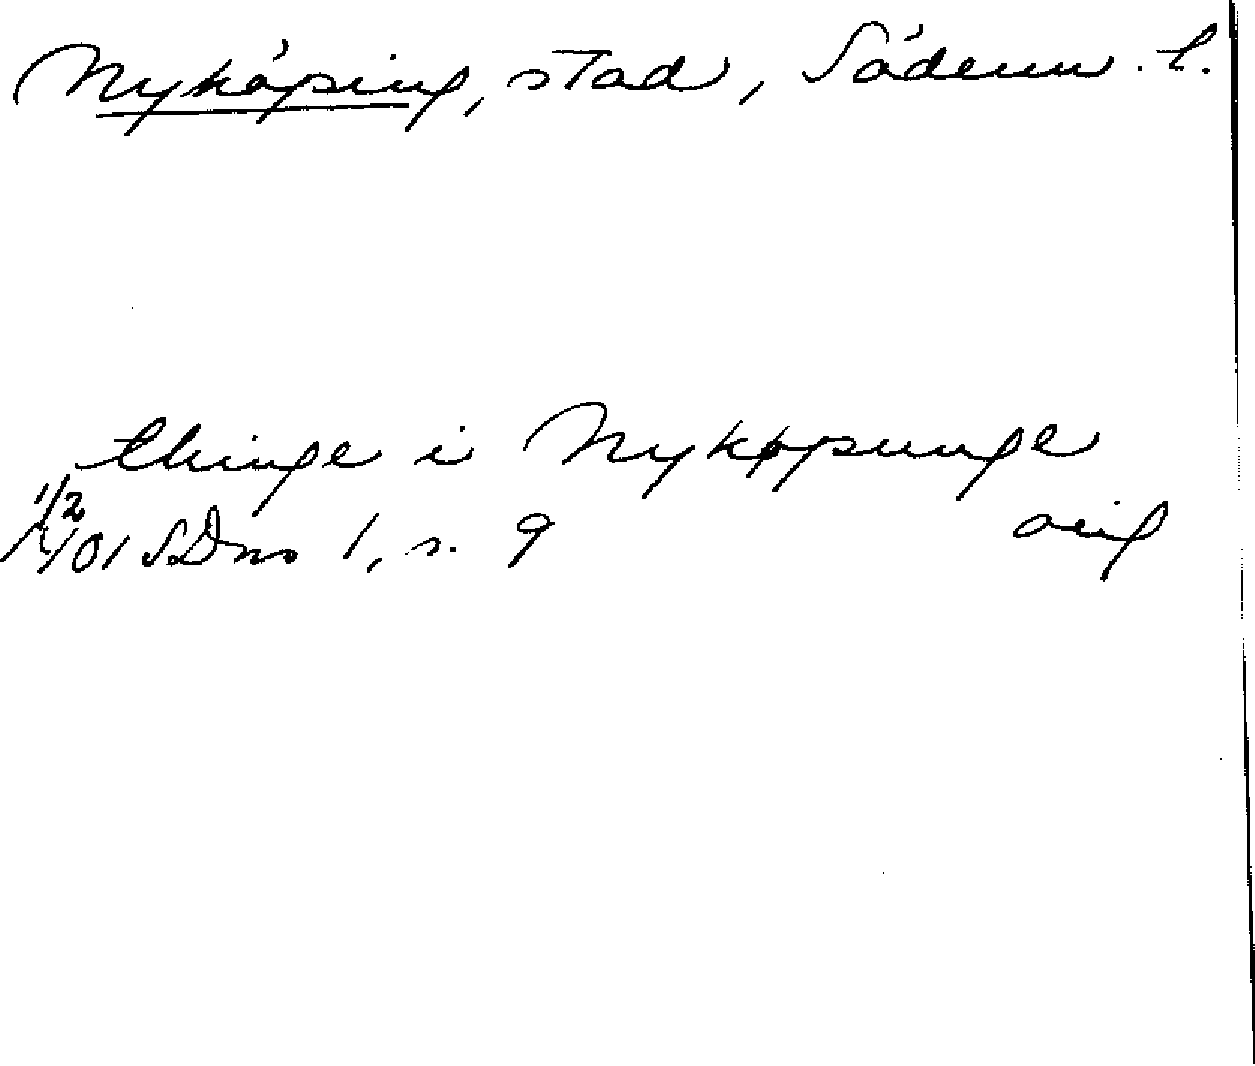 Nyköping, stad, Söderm. l.
thinge i Nykøpunge
1/2
1401 SDns 1, s. 9 orig